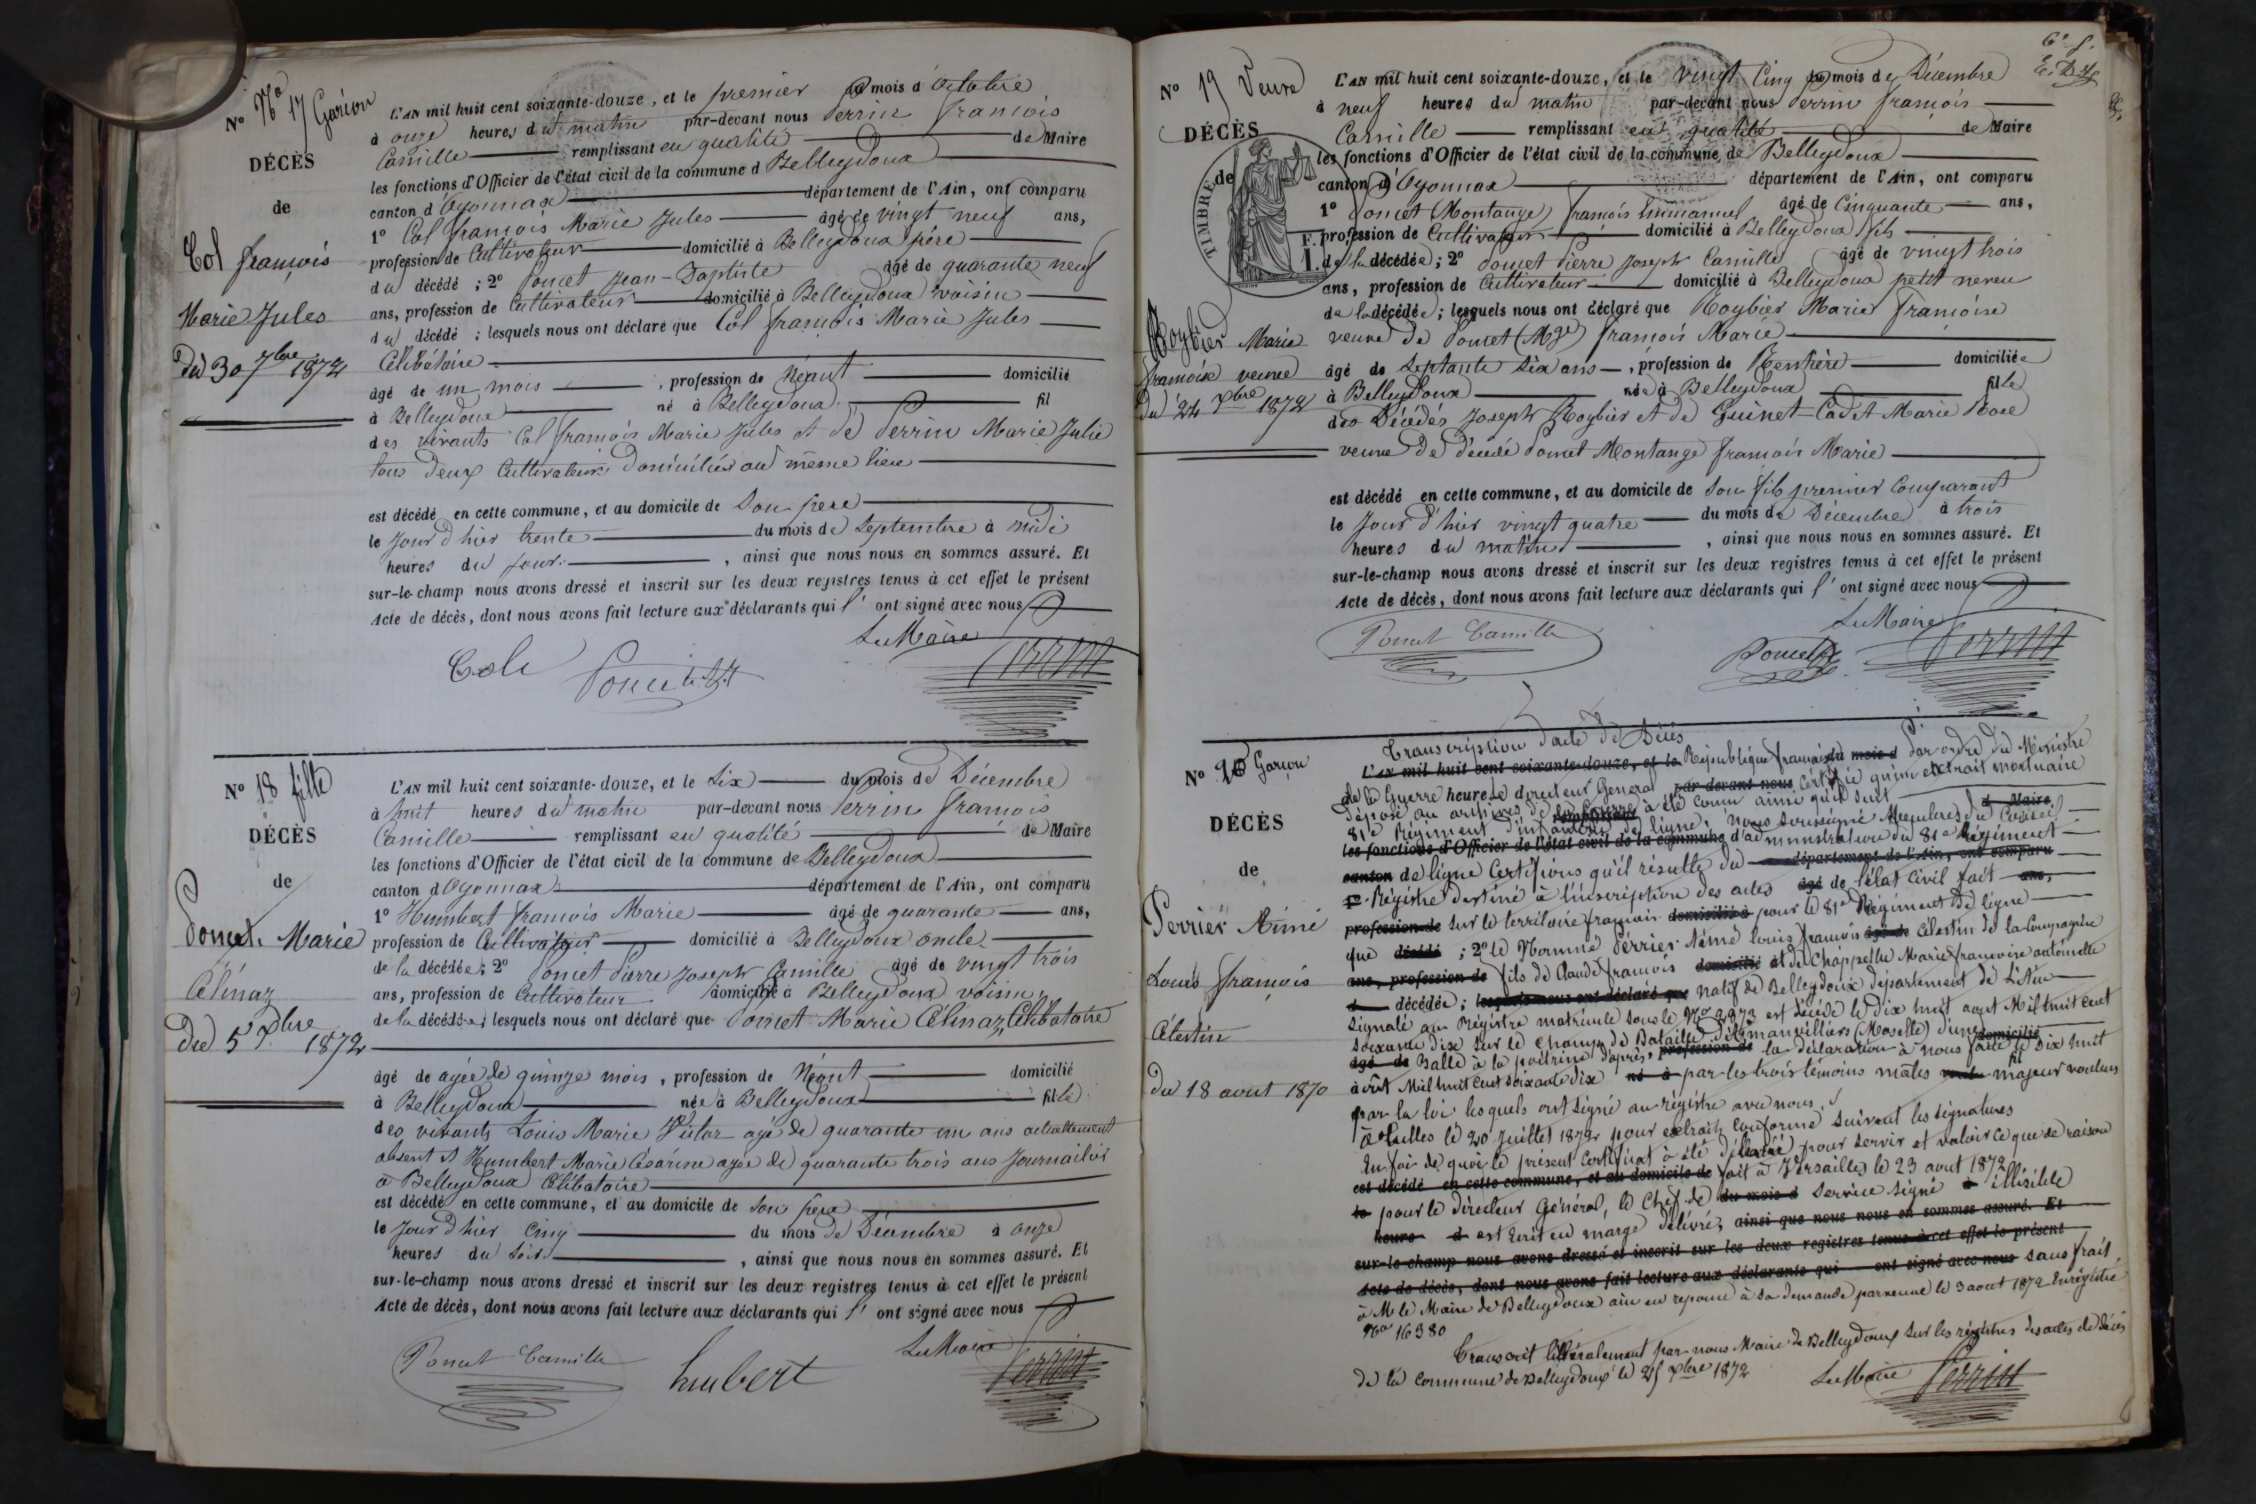 N° N° 17 Garçon
DÉCÈS
de
Col françois
Marie Jules
du 30 7bre 1872
L'AN mil huit cent soixante-douze, et le premier du mois d'octobre
à onze heures du matin par-devant nous Perrin françois
Camille remplissant en qualité de Maire
les fonctions d'Officier de l'état civil de la commune d Belleydoux
canton d'Oyonnax département de l'Ain, ont comparu
1° Col françois Marie Jules âgé de vingt neuf ans,
profession de Cultivateur domicilié à Belleydoux père
du décédé ; 2° Poncet Jean-Baptiste âgé de quarante neuf
ans, profession de Cultivateur domicilié à Belleydoux voisin
du décédé ; lesquels nous ont déclaré que Col françois Marie Jules
Célibataire
âgé de un mois , profession de Néant domicilié
à Belleydoux né à Belleydoux fil
des vivants Col françois Marie Jules et de Perrin Marie Julie
tous deux Cultivateurs domiciliés au même lieu
est décédé en cette commune, et au domicile de Son père
le jour d'hier trente du mois de Septembre à midi
heures du jour , ainsi que nous nous en sommes assuré. Et
sur-le-champ nous avons dressé et inscrit sur les deux registres tenus à cet effet le présent
Acte de décès, dont nous avons fait lecture aux déclarants qui l' ont signé avec nous
Le Maire
Cole Poncet Perrin
N° 18 fille
DÉCÈS
de
Poncet Marie
Célinaz
du 5 Xbre 1872
L'AN mil huit cent soixante-douze, et le Six du mois de Décembre
à huit heures du matin par-devant nous Perrin françois
Camille remplissant en qualité de Maire
les fonctions d'Officier de l'état civil de la commune de Belleydoux
canton d'Oyonnax département de l'Ain, ont comparu
1° Humbert françois Marie âgé de quarante ans,
profession de Cultivateur domicilié à Belleydoux oncle
de la décédée ; 2° Poncet Pierre Joseph Camille âgé de vingt trois
ans, profession de Cultivateur domicilié à Belleydoux voisin
de la décédée ; lesquels nous ont déclaré que Poncet Marie Célinaz Célibataire
âgé de agée de quinze mois , profession de Néant domicilié
à Belleydoux née à Belleydoux fille
des vivants Louis Marie Victor agé de quarante un ans actuellement
absent et Humbert Marie Césarine agée de quarante trois ans Journalière
à Belleydoux Célibataire
est décédé en cette commune, et au domicile de Son père
le jour d'hier cinq du mois de Décembre à onze
heures du soir , ainsi que nous nous en sommes assuré. Et
sur-le-champ nous avons dressé et inscrit sur les deux registres tenus à cet effet le présent
Acte de décès, dont nous avons fait lecture aux déclarants qui l' ont signé avec nous
Le Maire
Poncet Camille humbert Perrin
N° 19 Veuve
DÉCÈS
de
TIMBRE
Roybier Marie
françoise veuve
du 24 Xbre 1872
L'AN mil huit cent soixante-douze, et le vingt Cinq du mois de Décembre
à neuf heures du matin par-devant nous Perrin françois
Camille remplissant en qualité de Maire
les fonctions d'Officier de l'état civil de la commune de Belleydoux
canton d'Oyonnax département de l'Ain, ont comparu
1° Poncet (Montange) françois Emmanuel âgé de Cinquante ans,
profession de Cultivateur domicilié à Belleydoux fils
de la décédée ; 2° Poncet Pierre Joseph Camille âgé de vingt trois
ans, profession de Cultivateur domicilié à Belleydoux petit neveu
de la décédée ; lesquels nous ont déclaré que Roybier Marie Françoise
veuve de Poncet (Mge) françois Marie
âgé de Septante Six ans , profession de Rentière domiciliée
à Belleydoux née à Belleydoux fille
des Décédés Joseph Roybier et de Guinet-Cadet Marie Rose
veuve de décédé Poncet Montange françois Marie
est décédé en cette commune, et au domicile de Son fils premier Comparant
le jour d'hier vingt quatre du mois de Décembre à trois
heures du matin , ainsi que nous nous en sommes assuré. Et
sur-le-champ nous avons dressé et inscrit sur les deux registres tenus à cet effet le présent
Acte de décès, dont nous avons fait lecture aux déclarants qui l' ont signé avec nous
Le Maire
Poncet Camille Poncet Perrin
N° 20 Garçon
DÉCÈS
de
Perrier Aimé
Louis françois
Célestin
du 18 aout 1870
Transcription d'acte de Décès
L'AN mil huit cent soixante-douze, et le République française du mois d Par ordre du Ministre
de la Guerre heure Le directeur Général par-devant nous certifie qu'un extrait mortuaire
déposé au archives de la guerre à été conçu ainsi qu'il suit
81e Régiment d'infanterie de ligne, Nous soussigné Membres du Conseil d Maire
les fonctions d'Officier de l'état civil de la commune d'administration du 81e Régiment
canton de ligne Certifions qu'il résulte du département de l'Ain, ont comparu
1° Régistre destiné à l'inscription des actes âgé de l'état Civil fait ans,
profession de Sur le territoire français domicilié à pour le 81e Régiment de ligne
que décédé ; 2° le Nommé Perrier Aimé Louis françois âgé de Célestin de la Compagnie
ans, profession de fils de Claude françois domicilié et de Chappelle Marie françoise antoinette
d décédée ; lesquels nous ont déclaré que natif de Belleydoux département de l'Ain
Signalé au Régistre matricule sous le No 2873 est décédé le dix huit aout Mil huit cent
soixante dix sur le Champ de Bataille d'Amanvilliers (Moselle) d'une domicilié
âgé de Balle à la poitrine d'après, profession de la déclaration à nous faite le Dix huit
août Mil huit Cent Soixante dix né à par les trois témoins mâles majeur voulus fil
par la loi lesquels ont signé au régistre avec nous.
à Tulles le 20 Juillet 1872 pour extrait Conforme Suivent les signatures
En foi de quoi le présent Certificat à été délivré pour servir et valoir ce que de raison
est décédé en cette commune, et au domicile de fait à Versailles le 23 aout 1872
le pour le directeur Général, le Chef de du mois d Service signé à illisible
heure d est écrit en marge délivré, ainsi que nous nous en sommes assuré. Et
sur-le-champ nous avons dressé et inscrit sur les deux registres tenus à cet effet le présent
Acte de décès, dont nous avons fait lecture aux déclarants qui ont signé avec nous sans frais
à M le Maire de Belleydoux ain en réponse à sa demande parvenue le 3 aout 1872 Enrégistré
No 16380
Transcrit littéralement par nous Maire de Belleydoux sur les régistres des actes de décès
de la Commune de Belleydoux le 25 Xbre 1872
Le Maire Perrin